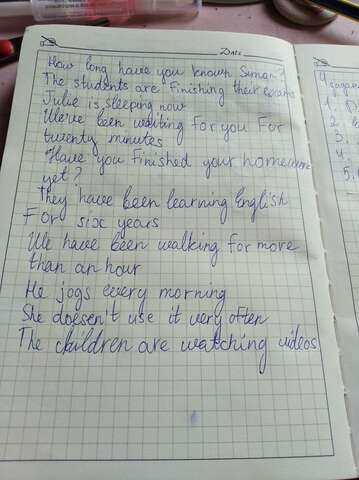 DATE
How long have you known Simon?
The students are finishing their exams
Julie is sleeping now
We've been waiting for you For
twenty minutes
Have you Finished your homework
yet?
They have been learning English
For six years
We have been walking for more
than an hour
He jogs every morning
She doesen't use it very often
The children are watching videos
1.
2.
3.
4.
5.